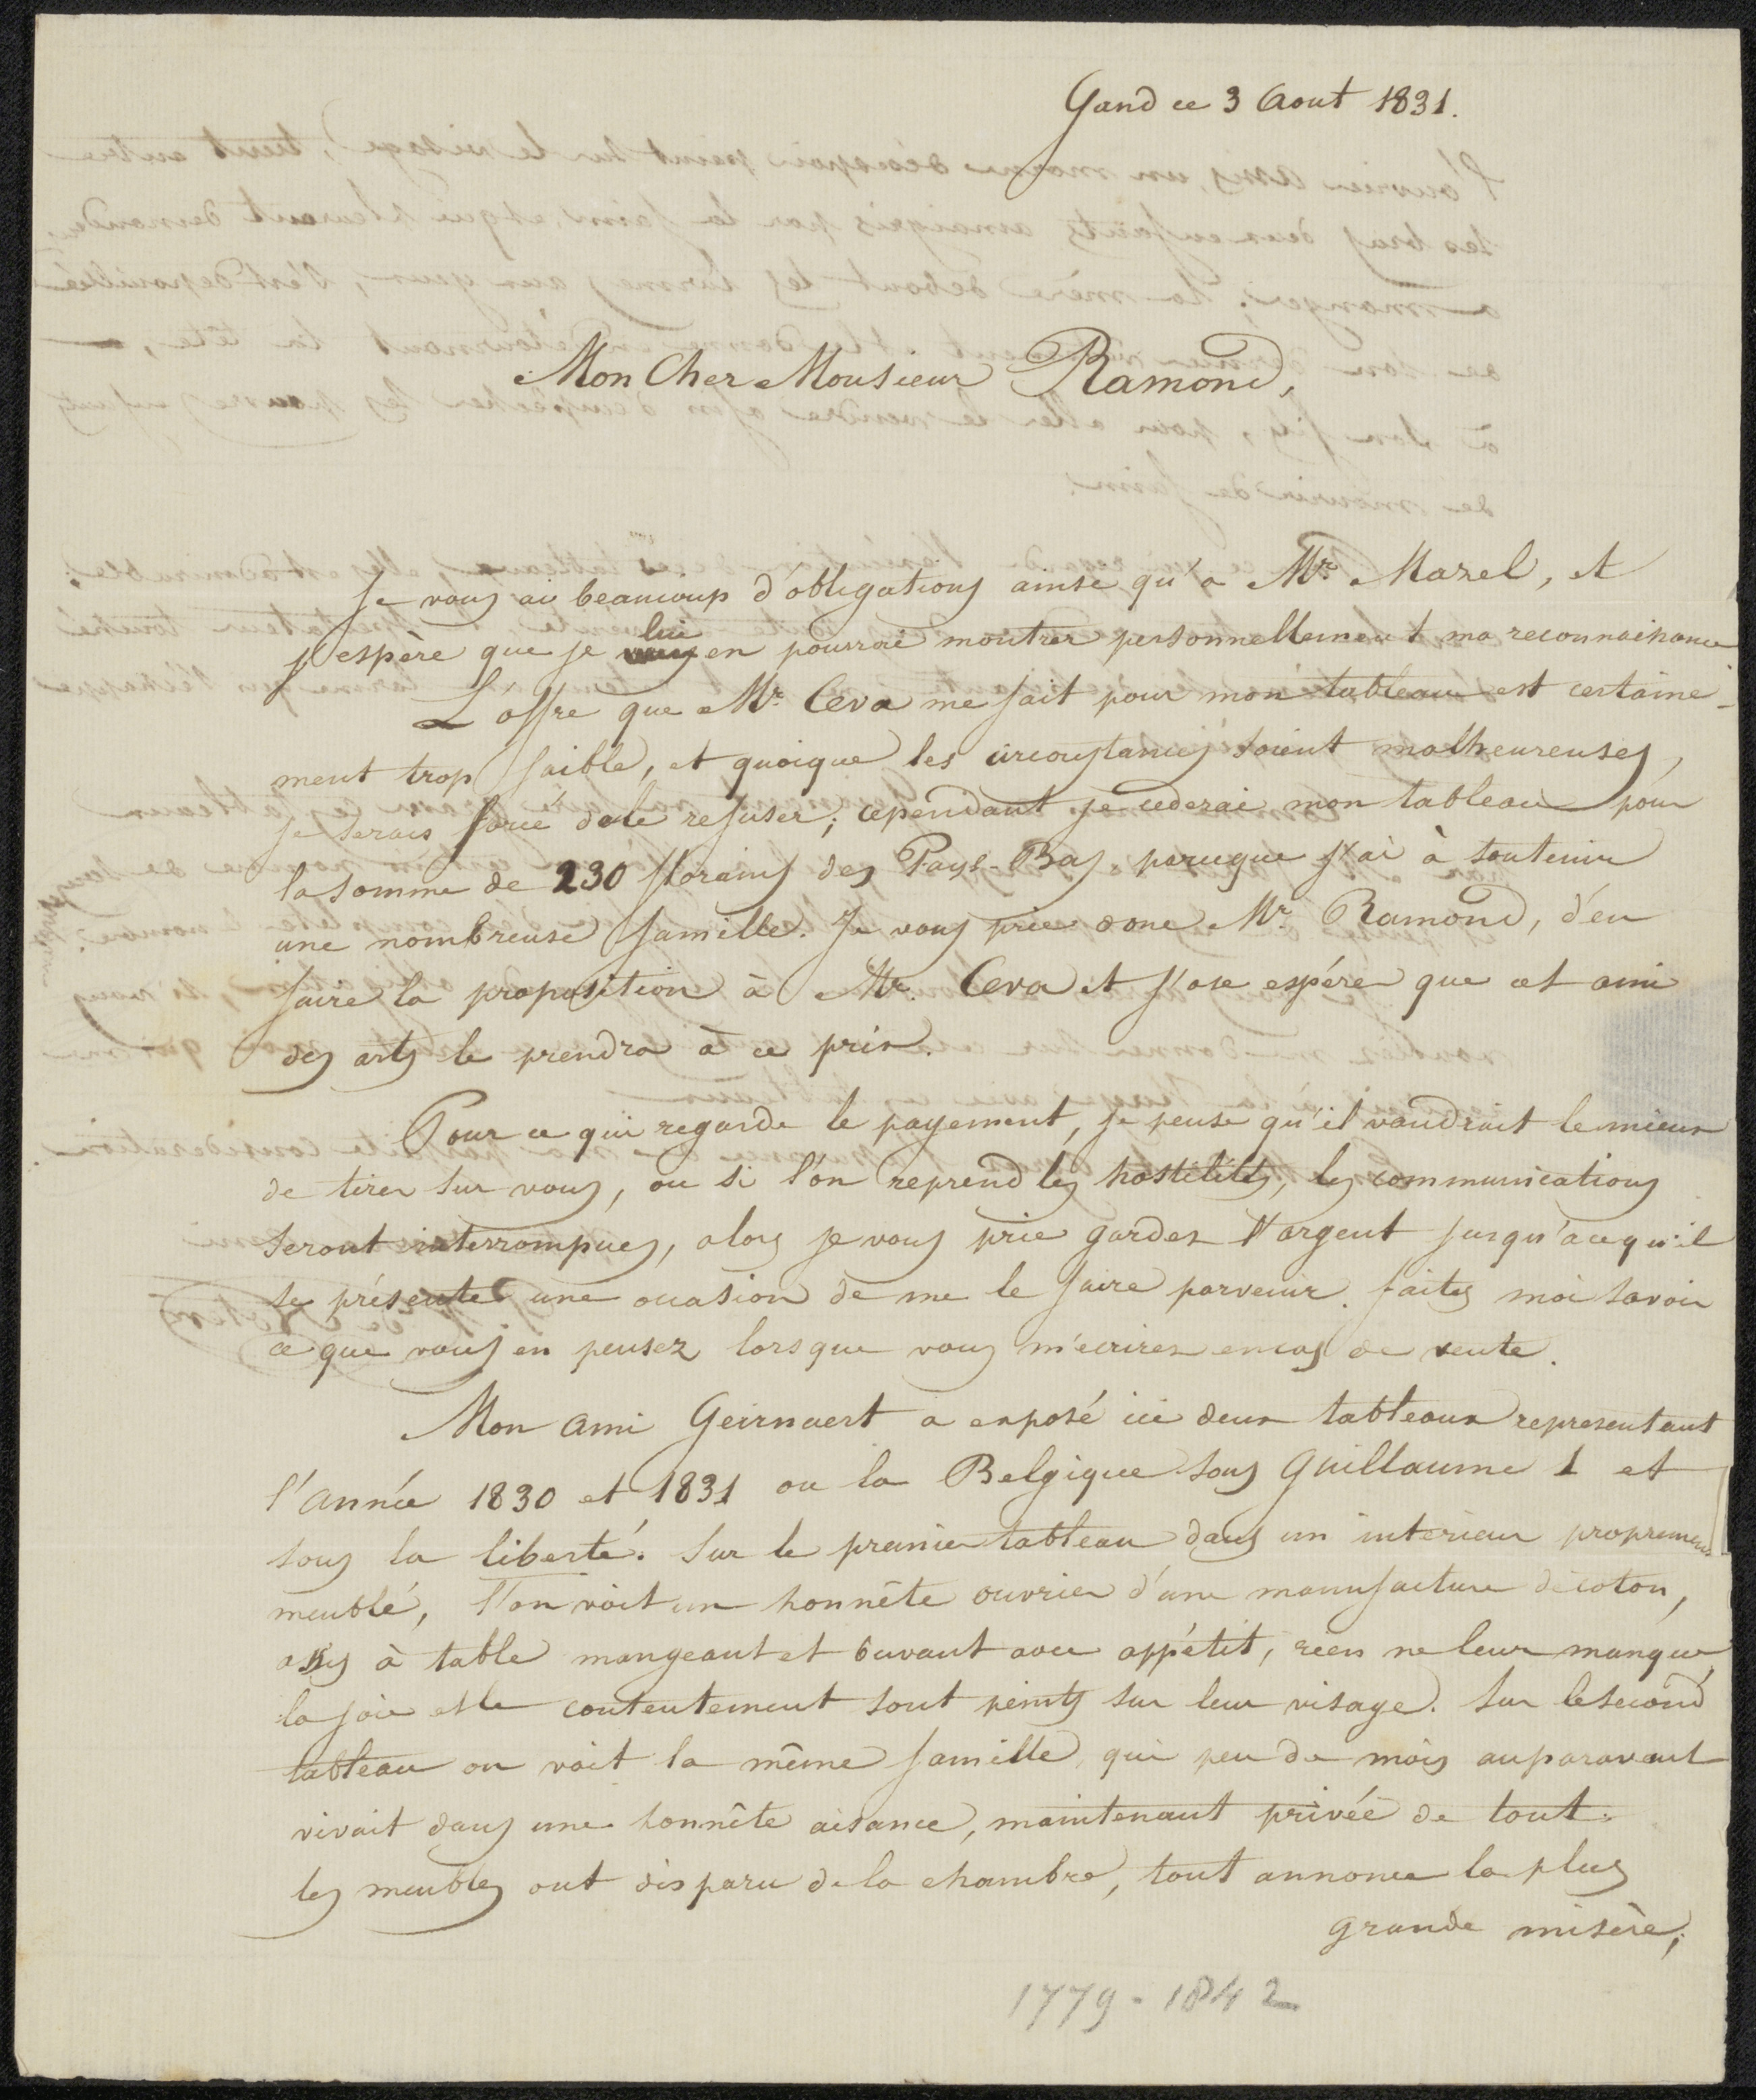 Gand ce 3 Aout 1831.
Mon Cher Monsieur Ramond,
Je vous ai beaucoup d'obligations ainsi qu'a Mr. Mazel, et
j'espère que je lui en pourrai montrer personnellement ma reconnaissance
L'offre que Mr. Ceva me fait pour mon tableau est certaine-
ment trop faible, et quoique les circonstances soient malheureuses,
je serais forcé de le refuser; cependant je cederai mon tableau pour
la somme de 230 florains des Pays-Bas, parceque j'ai à soutenir
une nombreuse famille. Je vous prie donc Mr. Ramond, d'en
faire la proposition à Mr. Ceva et j'ose espérer que cet ami
des arts le prendra à ce prix.
Pour ce qui regarde le payement, je pense qu'il vaudrait le mieux
de tirer sur vous, ou si l'on reprend les hostilités, les communications
seront interrompues, alors je vous prie garder l'argent jusqu'a ce qu'il
se présente une ocasion de me le faire parvenir. faites moi savoir
ce que vous en pensez lorsque vous m'ecrirez en cas de vente.
Mon ami Geirnaert a exposé ici deux tableaux representant
l'année 1830 et 1831 ou la Belgique sous Guillaume 1 et
sous la liberté. Sur le premier tableau dans un interieur proprement
meublé, l'on voit un honnête ouvrier d'une manufacture de coton,
assis à table mangeant et buvant avec appétit, rien ne leur manque
la joie et le contentement sont peints sur leur visage. Sur le second
tableau on voit la même famille, qui peu de mois auparavant
vivait dans une honnête aisance, maintenant privée de tout.
les meubles ont disparu de la chambre, tout annonce la plus
grande misère;
1779-1842